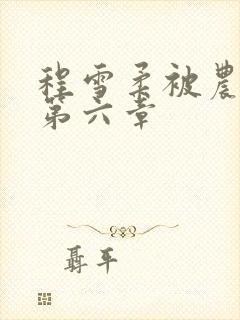 程雪柔被農
第六章
聶平